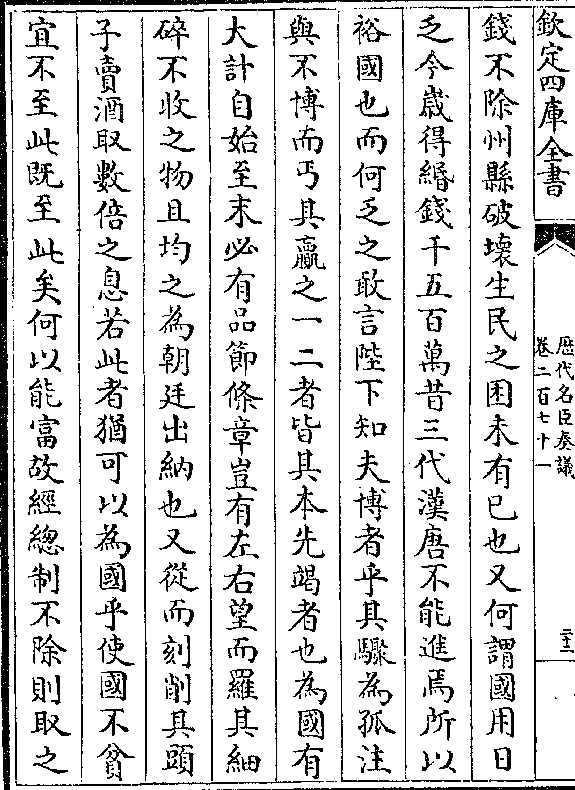 欽定四庫全書
歷代名臣奏議
卷二百七十一
二十二
錢不除州縣破壞生民之困未有已也又何謂國用日
乏今歲得緡錢千五百萬昔三代漢唐不能進焉所以
裕國也而何乏之敢言陛下知夫博者乎其驟為孤注
與不博而丐其贏之一二者皆其本先竭者也為國有
大計自始至末必有品節條章豈有左右望而羅其細
碎不收之物且均之為朝廷出納也又從而刻削其頭
子賣酒取數倍之息若此者猶可以為國乎使國不貧
宜不至此既至此矣何以能富故經總制不除則取之